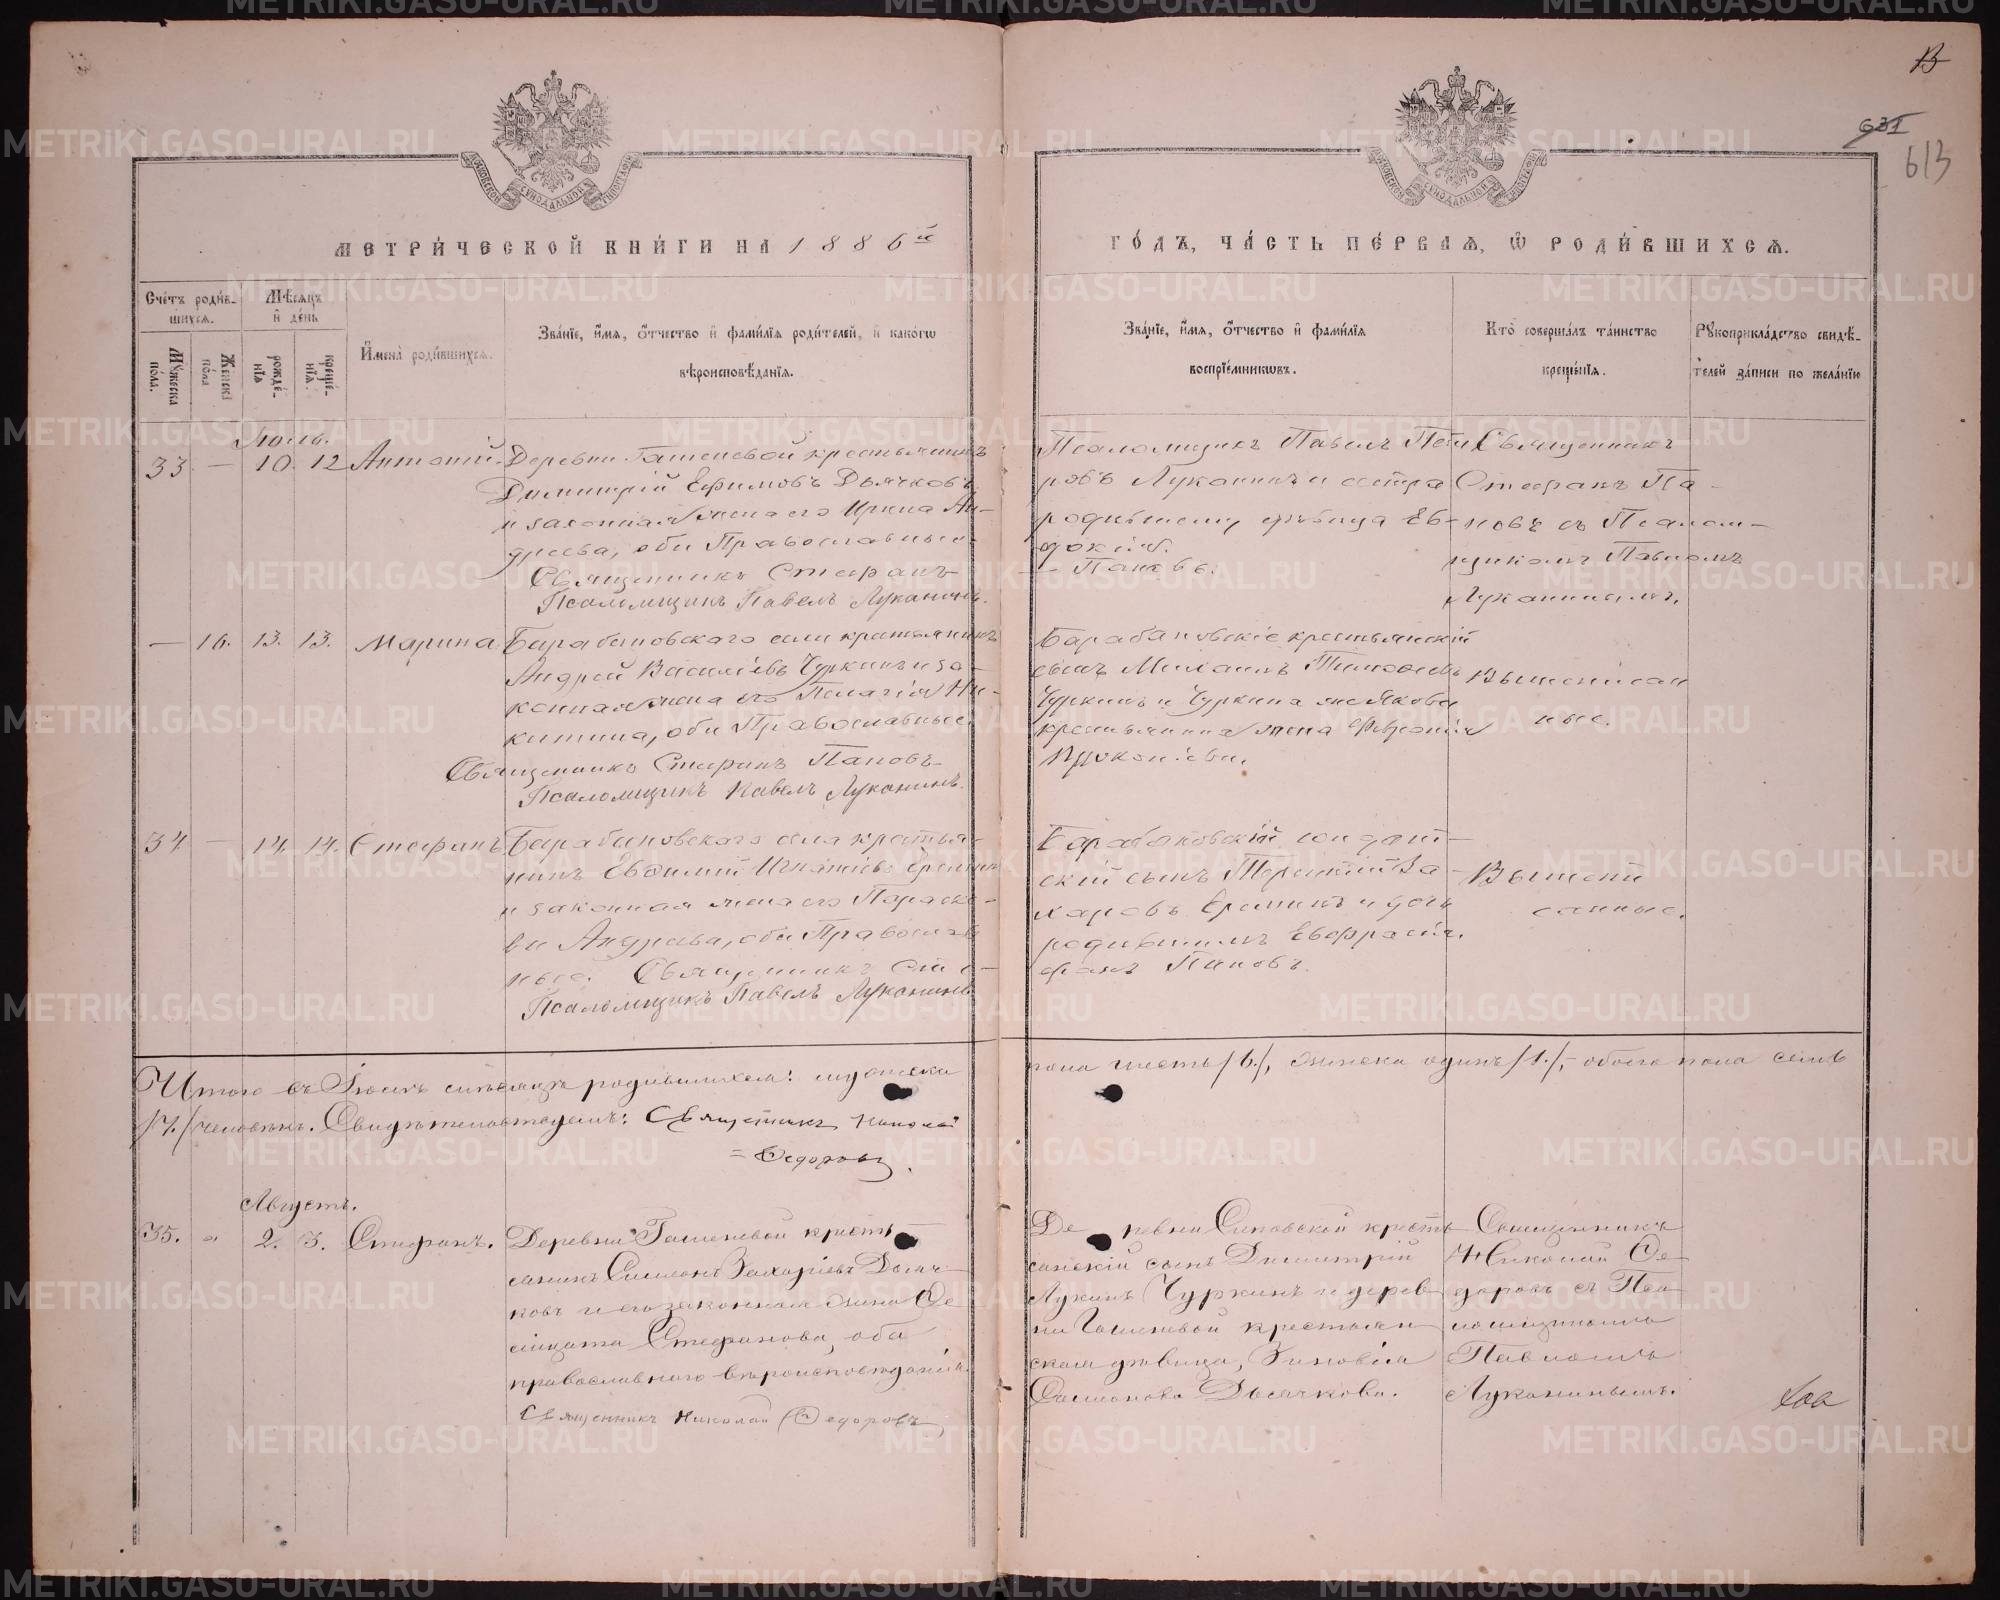 В
631
613
МОСКОВСКОЙ СѴНОДАЛЬНОЙ ТИПОГРАФІИ
МОСКОВСКОЙ СѴНОДАЛЬНОЙ ТИПОГРАФІИ
МЕТРИ́ЧЕСКОЙ КНИ́ГИ НА 1886й
ГО́ДЪ, ЧА́СТЬ ПЕ́РВАЯ, Ѡ РОДИ́ВШИХСЯ.
Сче́тъ роди́в-
шихся.
Мѣ́сяцъ
и҆ де́нь
Мꙋ́жеска по́ла.
Же́нска по́ла
рожде́-
нїя
креще́-
нїя.
И҆мена̀ роди́вшихся.
Зва́нїе, и҆́мя, ѻ҆́тчество и҆ фами́лїя роди́телей, и҆ како́гѡ
вѣроисповѣ́данїя.
Зва́нїе, и҆́мя, ѻ҆́тчество и҆ фами́лїя
воспрїе́мникѡвъ.
Кто̀ соверша́лъ та́инство
креще́нїя.
Рꙋкоприкла́дство свидѣ́-
телей за́писи по жела́нїю
Іюль.
33 — 10. 12 Антоній. Деревни Гашеневой крестьянинъ
Димитрій Ефимовъ Дьячковъ
и законная жена его Ирина Ан-
дреева, оби Православные
Священникъ Стефанъ
Псаломщикъ Павелъ Луканинъ.
Псаломщикъ Павелъ Пет
ровъ Луканинъ и сестра
родившему, дѣвица Ев-
докія.
— Пановъ.
Священникъ
Стефанъ Па-
новъ съ Псалом-
щикомъ Павломъ
Луканинымъ.
— 16. 13. 13. Марина Барабановскаго села крестьянинъ
Андрей Василіевъ Чуркинъ и за-
конная жена его Пелагія Ни-
китина, оби Православные
Священникъ Стефанъ Пановъ
Псаломщикъ Павелъ Луканинъ.
Барабановскіе крестьянскій
сынъ Михаилъ Тимофеевъ
Чуркинъ и Чуркина же Якова
крестьянина жена Ефросинія
Прокопіева.
Вышеписан
ные.
34 — 14. 14. Стефанъ Барабановскаго села крестья-
нинъ Евфимій Игнатіевъ Ереминъ
и законная жена его Параске-
ва Андреева, оби Православ
ные. Священникъ Сте-
Псаломщикъ Павелъ Луканинъ
Барабановскій солдат-
скій сынъ Терентій За-
харовъ Ереминъ и дочь
родившихъ Евфрасія.
фанъ Пановъ.
Вышепи
санные.
Итого въ Іюлѣ мѣсяцѣ родившихся: мужеска
пола шесть /6./, женска одинъ /1./, обоего пола семь
/7./ человѣкъ. Свидѣтельствуемъ: Священникъ Николай
= Ѳедоровъ.
Августъ.
35. „ 2. 3. Стефанъ. Деревни Гашеневой кресть-
янинъ Симеонъ Захаріевъ Дьяч-
ковъ и его законная жена Ѳе
Стефанова, оба
православнаго вѣроисповѣданія.
Священникъ Николай Ѳедоровъ
Деревни Сиповской кресть
янскій сынъ Димитрій
Лукинъ Чуркинъ и дерев
ни Гашеневой крестьян
ская дѣвица, Зиновія
Симеонова Дьячкова.
Священникъ
Николай Ѳе-
доровъ съ Пса-
ломщикомъ
Павломъ
Луканинымъ.